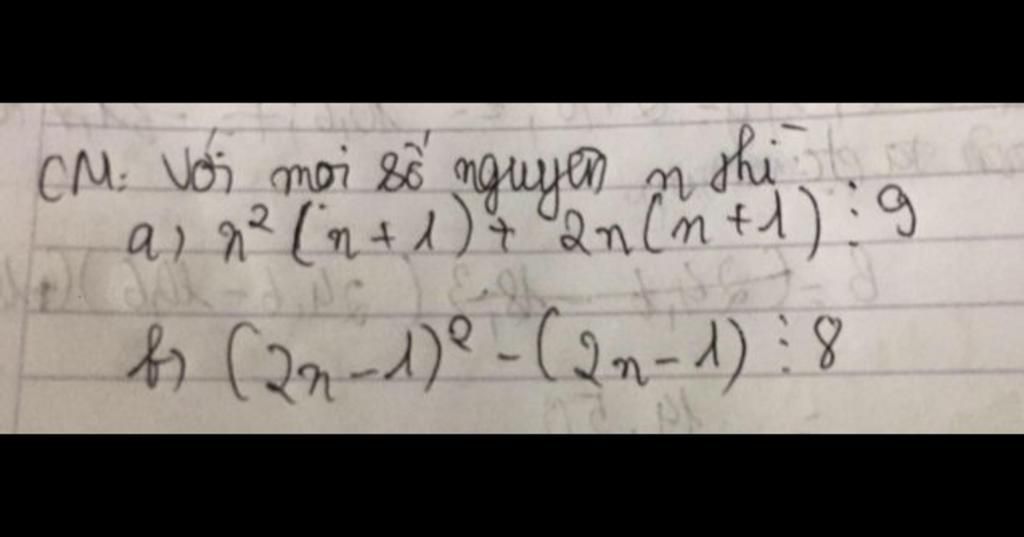 CM: Với mọi số nguyên n thì
a) n²(n+1)+ 2n(n+1) ⋮ 9
b) (2n-1)² - (2n-1) ⋮ 8